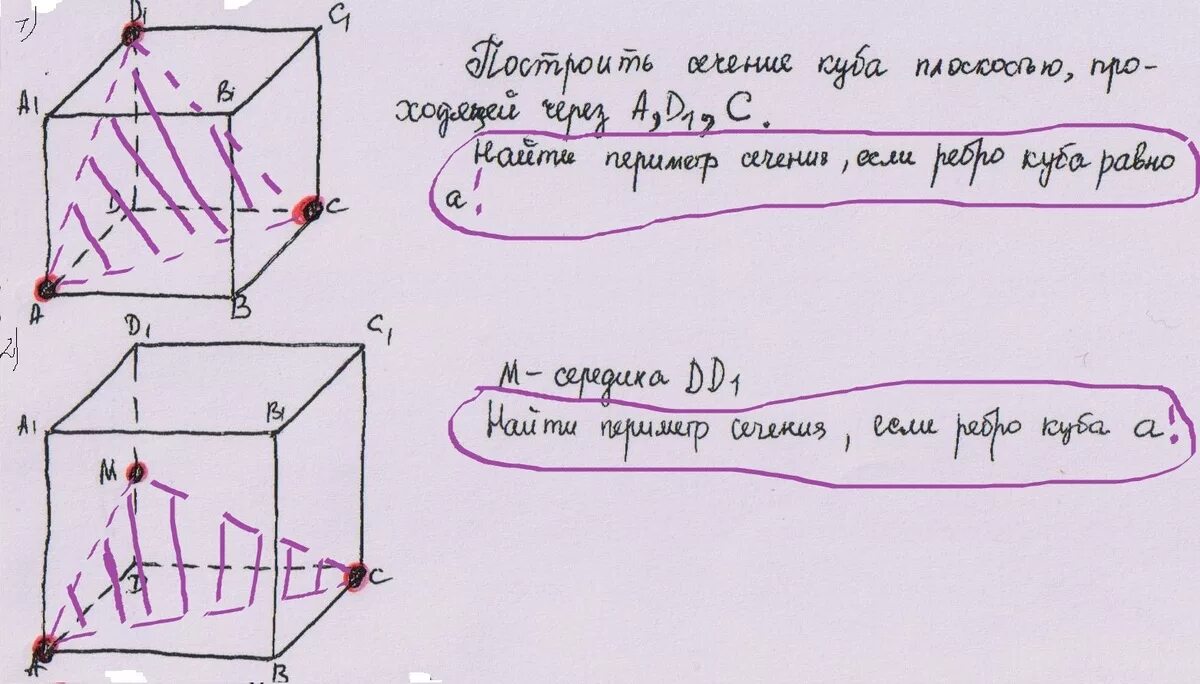 1)
D1
C1
A1
B1
Построить сечение куба плоскостью, про-
ходящей через A, D1, C.
Найти периметр сечения, если ребро куба равно
a!
D
C
A
B
2)
D1
C1
M - середина DD1
A1
B1
Найти периметр сечения, если ребро куба a!
M
D
C
A
B